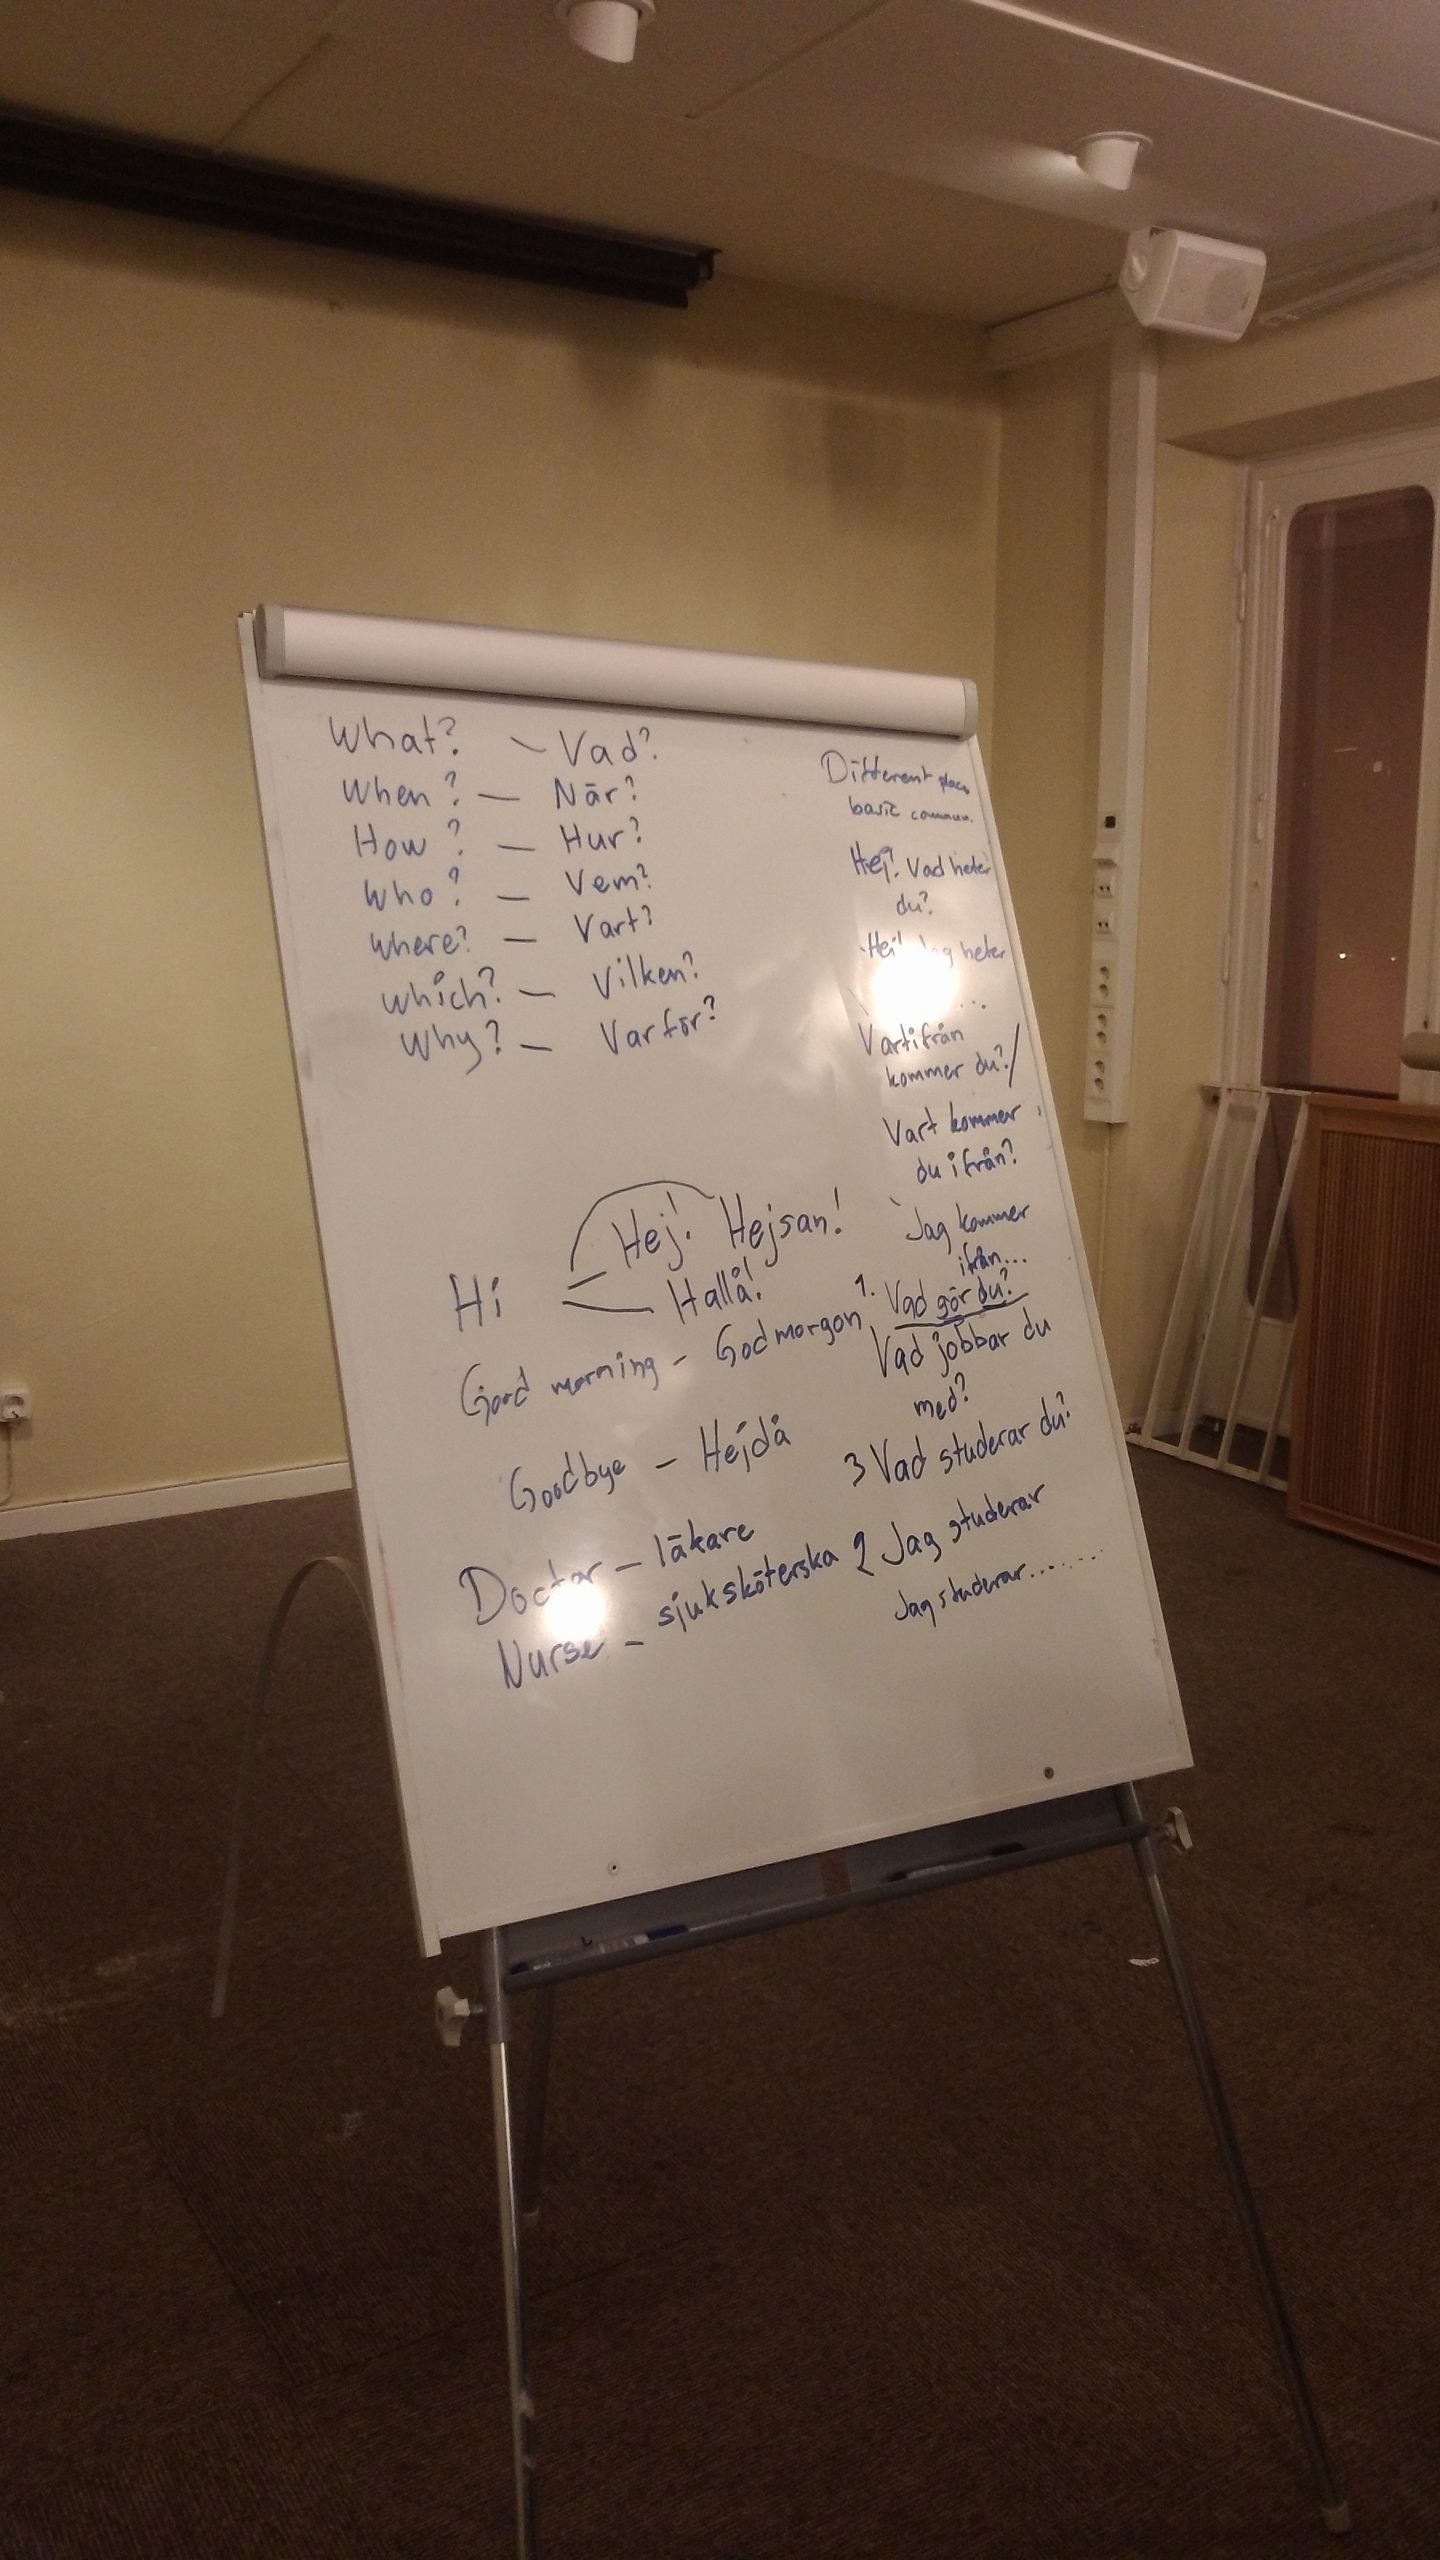 What? - Vad?
When? - När?
How? - Hur?
Who? - Vem?
Where? - Vart?
Which? - Vilken?
Why? - Varför?
Hi
Hej! Hejsan!
Hallå!
Good morning - Godmorgon
Goodbye - Hejdå
Doctor - läkare
Nurse - sjuksköterska
Different
basic commun.
Hej! Vad heter
du?
Hej! Jag heter
...
Vartifrån
kommer du?/
Vart kommer
du ifrån?
Jag kommer
ifrån...
1. Vad gör du?
Vad jobbar du
med?
3 Vad studerar du?
2 Jag studerar
Jag studerar........